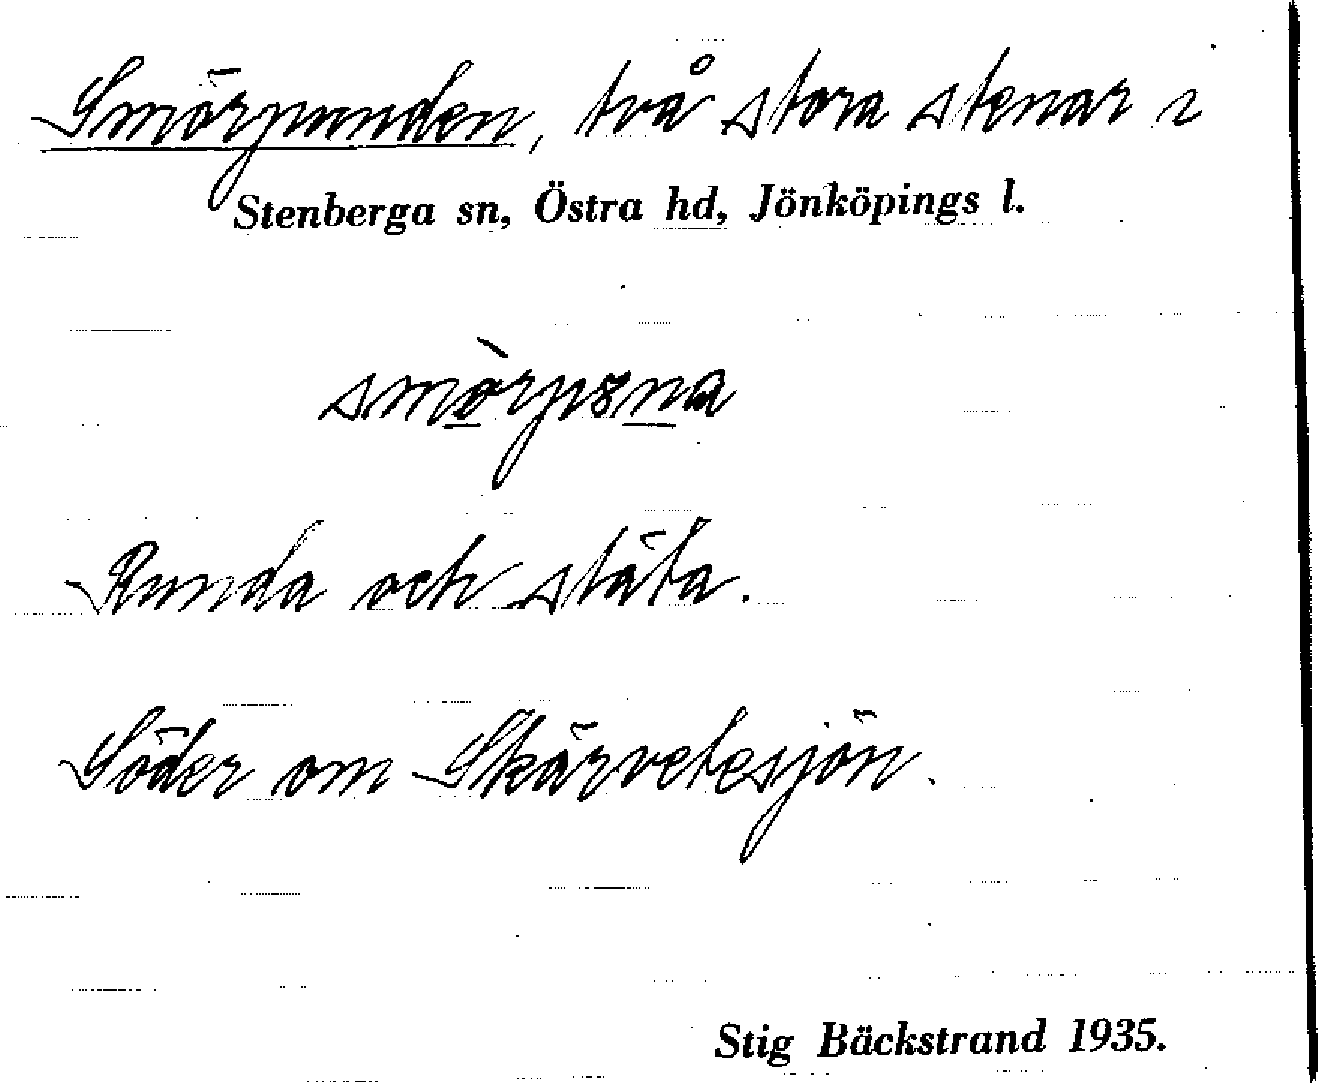 Smörpunden, två stora stenar i
Stenberga sn, Östra hd, Jönköpings l.
Runda och släta.
Söder om Skärvetesjön.
Stig Bäckstrand 1935.